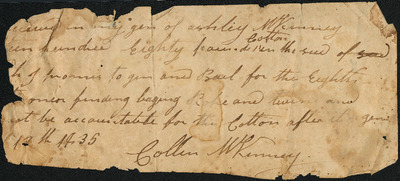 in my gen of ashley McKinney
hundred Eighty pounds Cotton in the seed of
of morris to gen and Bail for the Eighth
finding baging Rope and twine and
not be accountable for the Cotton after it is gend
12th 1835
Collin McKinney